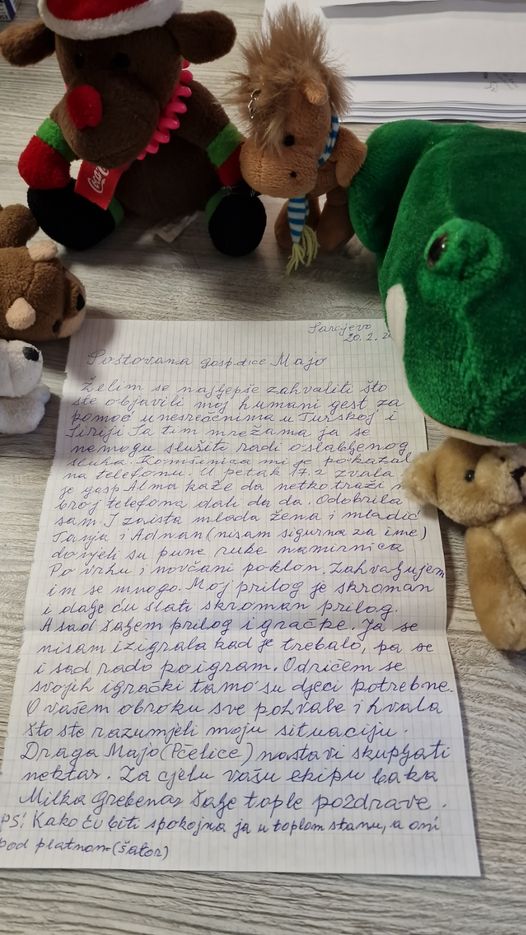 Coca-Cola
Sarajevo
20.2.
Poštovana gospođice Majo
Želim se najljepše zahvaliti što
ste objavili moj humani gest za
pomoć unesrećnima u Turskoj i
Siriji Ta tim mrežama ja se
nemogu služiti radi oslabljenog
sluha. Komšinica mi je pokazala
na telefonu. U petak 17.2 zvala
je gosp Alma kaže da netko traži
broj telefona dali da da. Odobrila
sam. I zaista mlada žena i mladić
Tanja i Adnan (nisam sigurna za ime)
donjeli su pune ruke namirnica
Po vrhu i novčani poklon. Zahvaljujem
im se mnogo. Moj prilog je skroman
i dalje ću slati skroman prilog.
A sad šaljem prilog i igračke. Ja se
nisam izigrala kad je trebalo, pa se
i sad rado poigram. Odričem se
svojih igrački tamo su djeci potrebne.
O vašem obroku sve pohvale i hvala
što ste razumjeli moju situaciju.
Draga Majo (Pčelice) nastavi skupljati
nektar. Za cjelu vašu ekipu baka
Milka Grebenar šalje tople pozdrave.
PS! Kako ću biti spokojna ja u toplom stanu, a oni
pod platnom (šator)